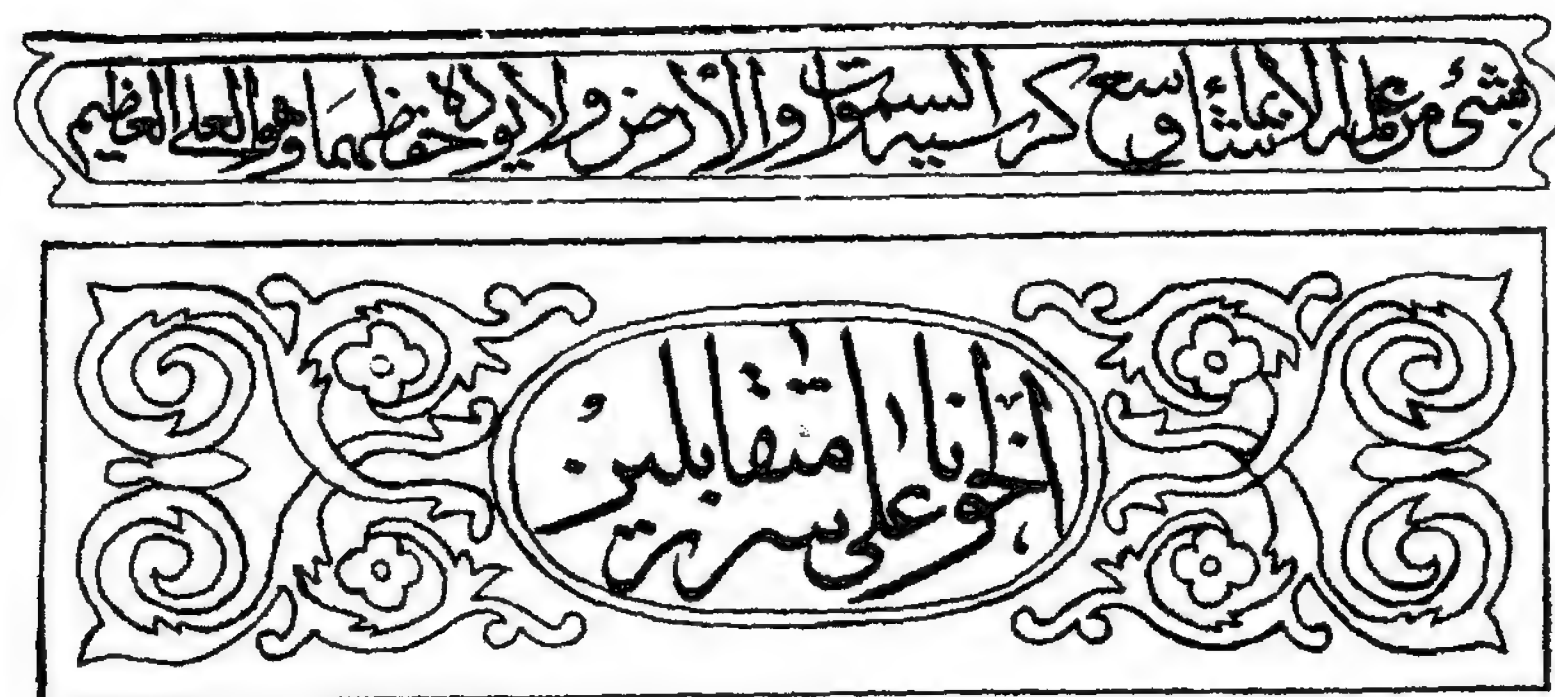 بشئ من علمه الا بما شاء وسع كرسيه السموات والأرض ولا يوده حفظهما وهو العلى العظيم
اخوانا على سرر متقابلين